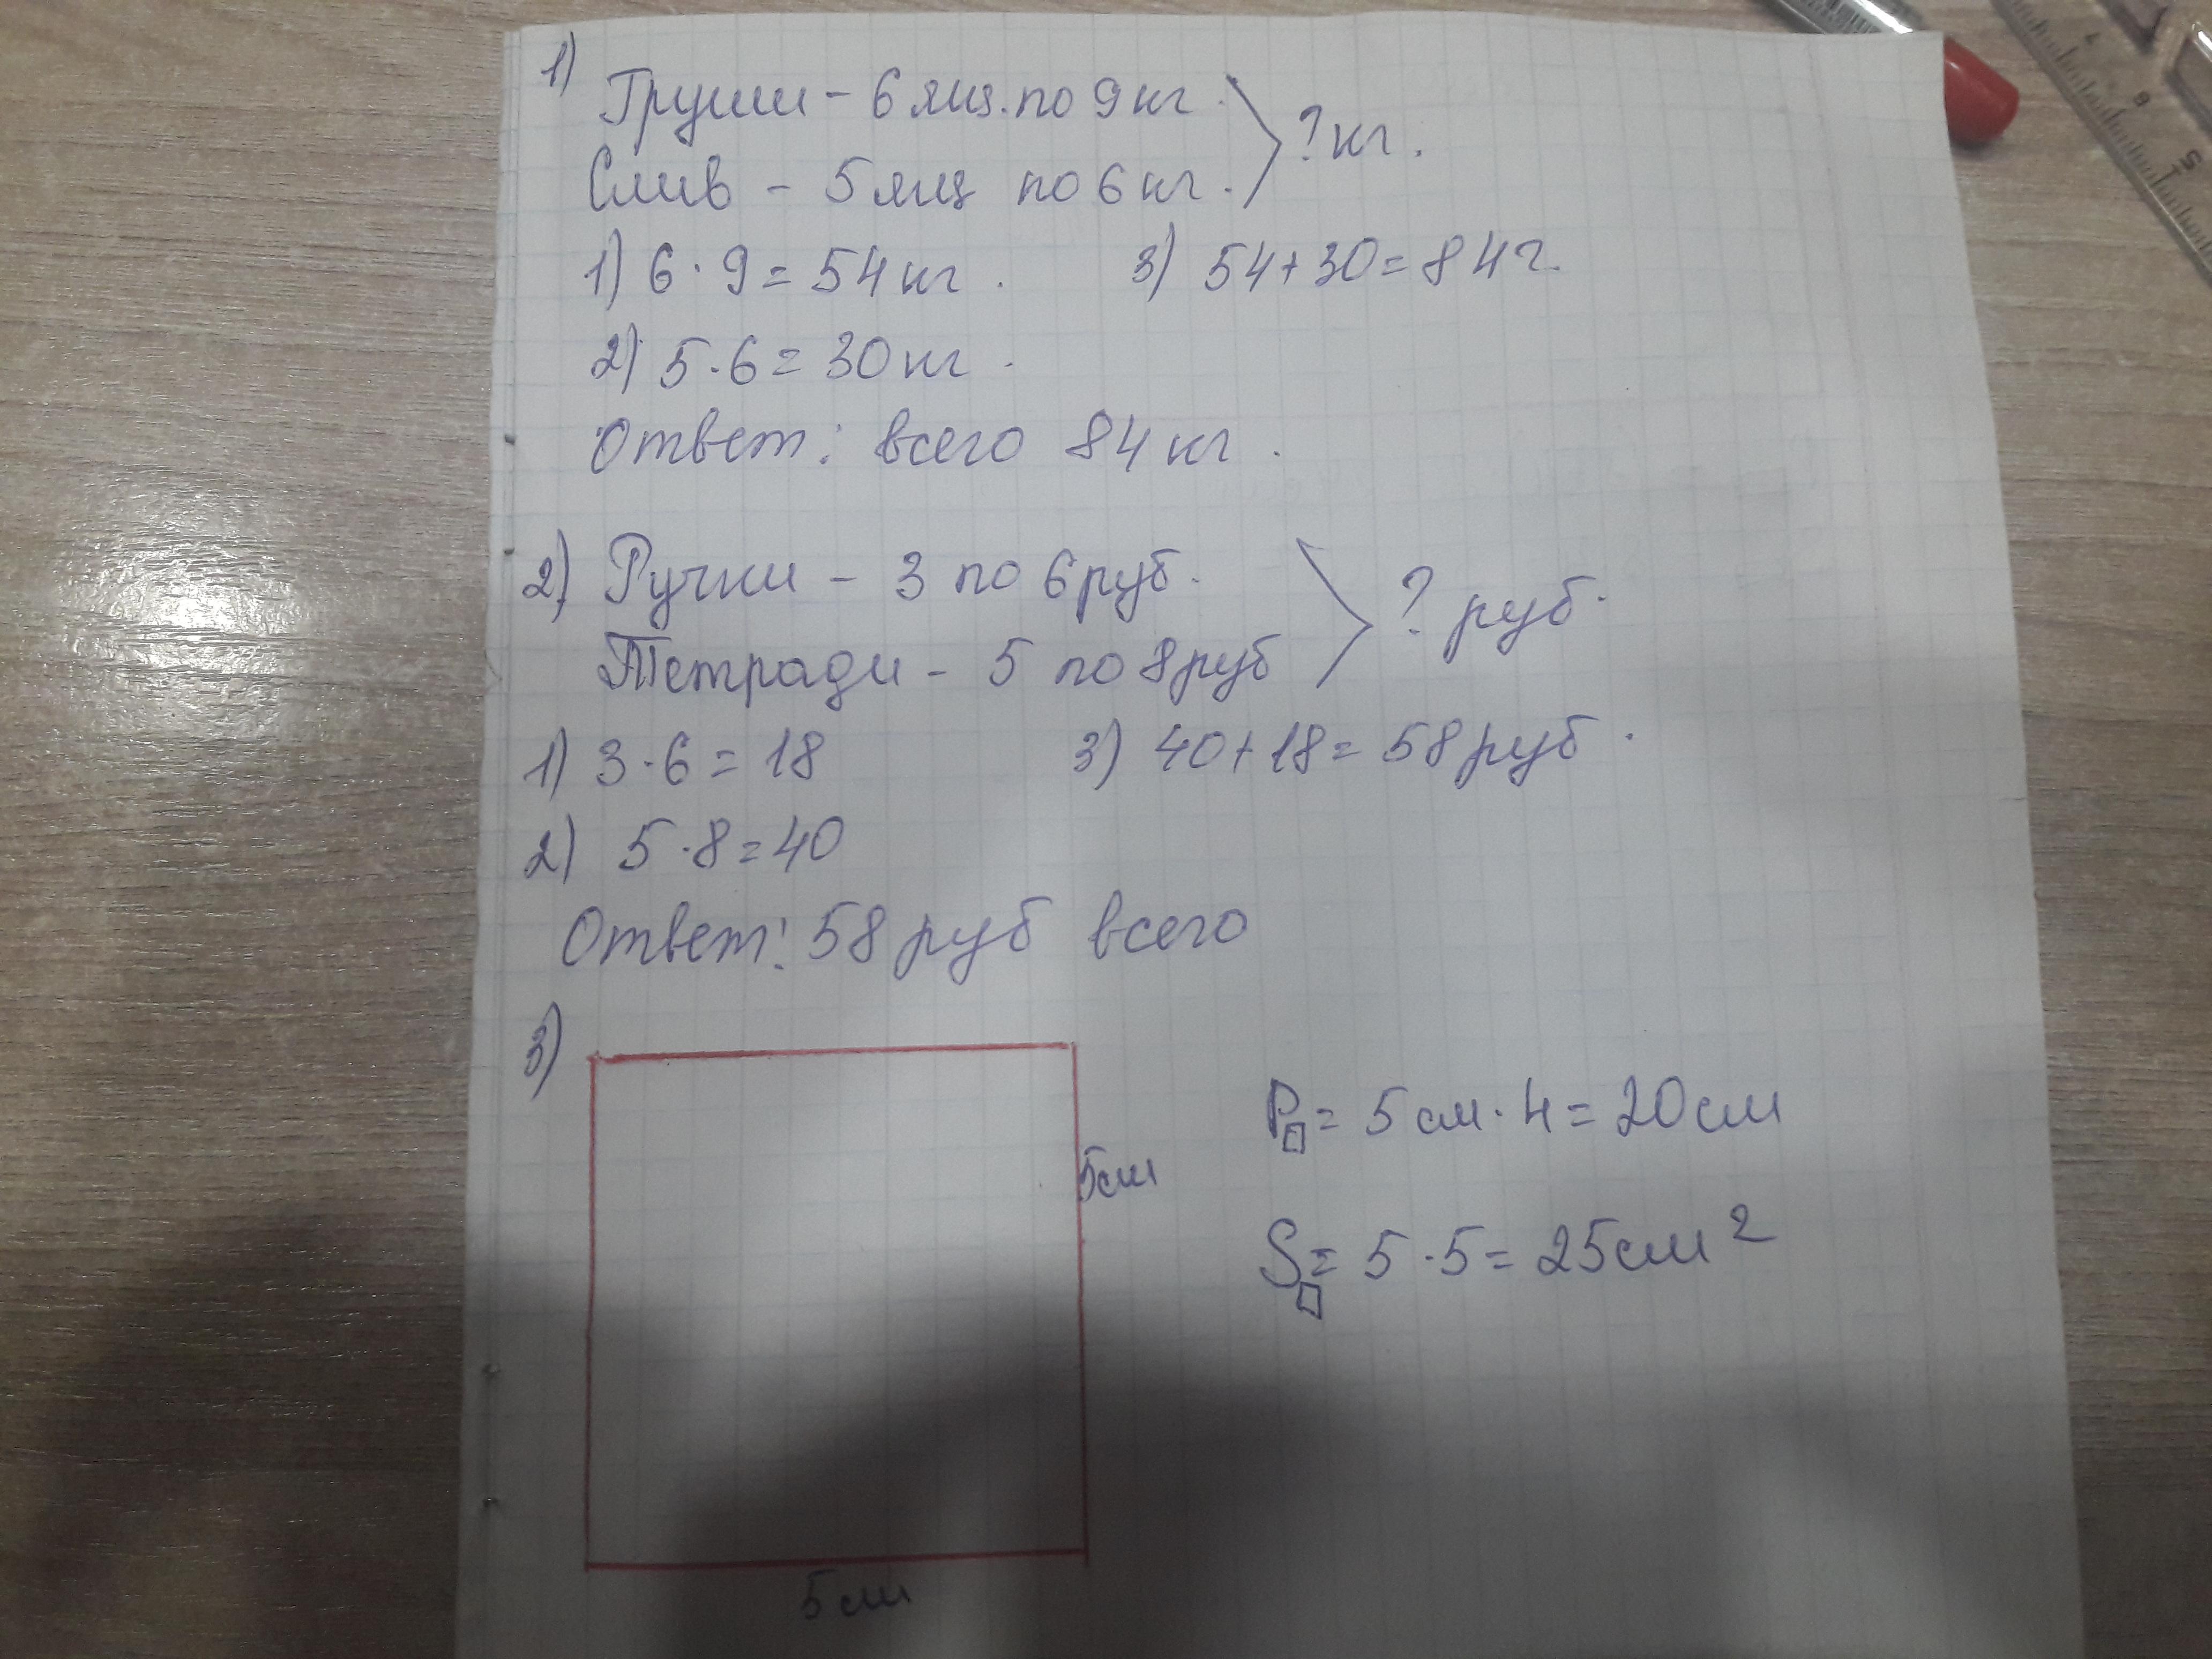 1)
Груши - 6 ящ. по 9 кг.
Слив - 5 ящ по 6 кг.
? кг.
1) 6 · 9 = 54 кг. 3) 54 + 30 = 84 г.
2) 5 · 6 = 30 кг.
Ответ: всего 84 кг.
2) Ручки - 3 по 6 руб.
Тетради - 5 по 8 руб
? руб.
1) 3 · 6 = 18 3) 40 + 18 = 58 руб.
2) 5 · 8 = 40
Ответ: 58 руб всего
3)
P□ = 5 см · 4 = 20 см
5 см
S□ = 5 · 5 = 25 см²
5 см
7
6
5